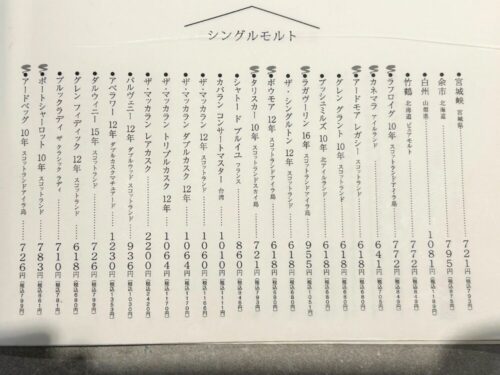 シングルモルト
●宮城峡 宮城県 721円(税込793円)
●余市 北海道 795円
●白州 山梨県 1081円
●竹鶴 北海道 ピュアモルト 772円
●ラフロイグ 10年 スコットランドアイラ島 772円
●カネマラ アイルランド 641円(税込705円)
●アードモア レガシー スコットランド 618円(税込680円)
●グレン グラント 10年 スコットランド 618円(税込680円)
●ブッシュミルズ 10年 北アイルランド 618円(税込680円)
●ラガヴーリン 16年 スコットランドアイラ島 955円
●ザ・シングルトン 12年 スコットランド 618円(税込680円)
●ボウモア 12年 スコットランドアイラ島 618円(税込680円)
●タリスカー 10年 スコットランドスカイ島 721円(税込793円)
●シャトード ブルイユ フランス 860円(税込946円)
●カバラン コンサートマスター 台湾 1010円(税込1111円)
●ザ・マッカラン 12年 スコットランド 1060円
●ザ・マッカラン ダブルカスク 12年 1064円(税込1170円)
●ザ・マッカラン トリプルカスク 12年 1064円(税込1170円)
●ザ・マッカラン レアカスク 2200円(税込2420円)
●バルヴェニー 12年 ダブルウッド スコットランド 936円
●アベラワー 12年 ダブルカスクマチュアード 1230円(税込1353円)
●ダルウィニー 15年 スコットランド 726円
●グレン フィディック 12年 スコットランド 618円(税込680円)
●ブルックラディ ザ クラシック ラディ 710円(税込781円)
●ポートシャーロット 10年 スコットランド 783円(税込861円)
●アードベッグ 10年 スコットランドアイラ島 726円